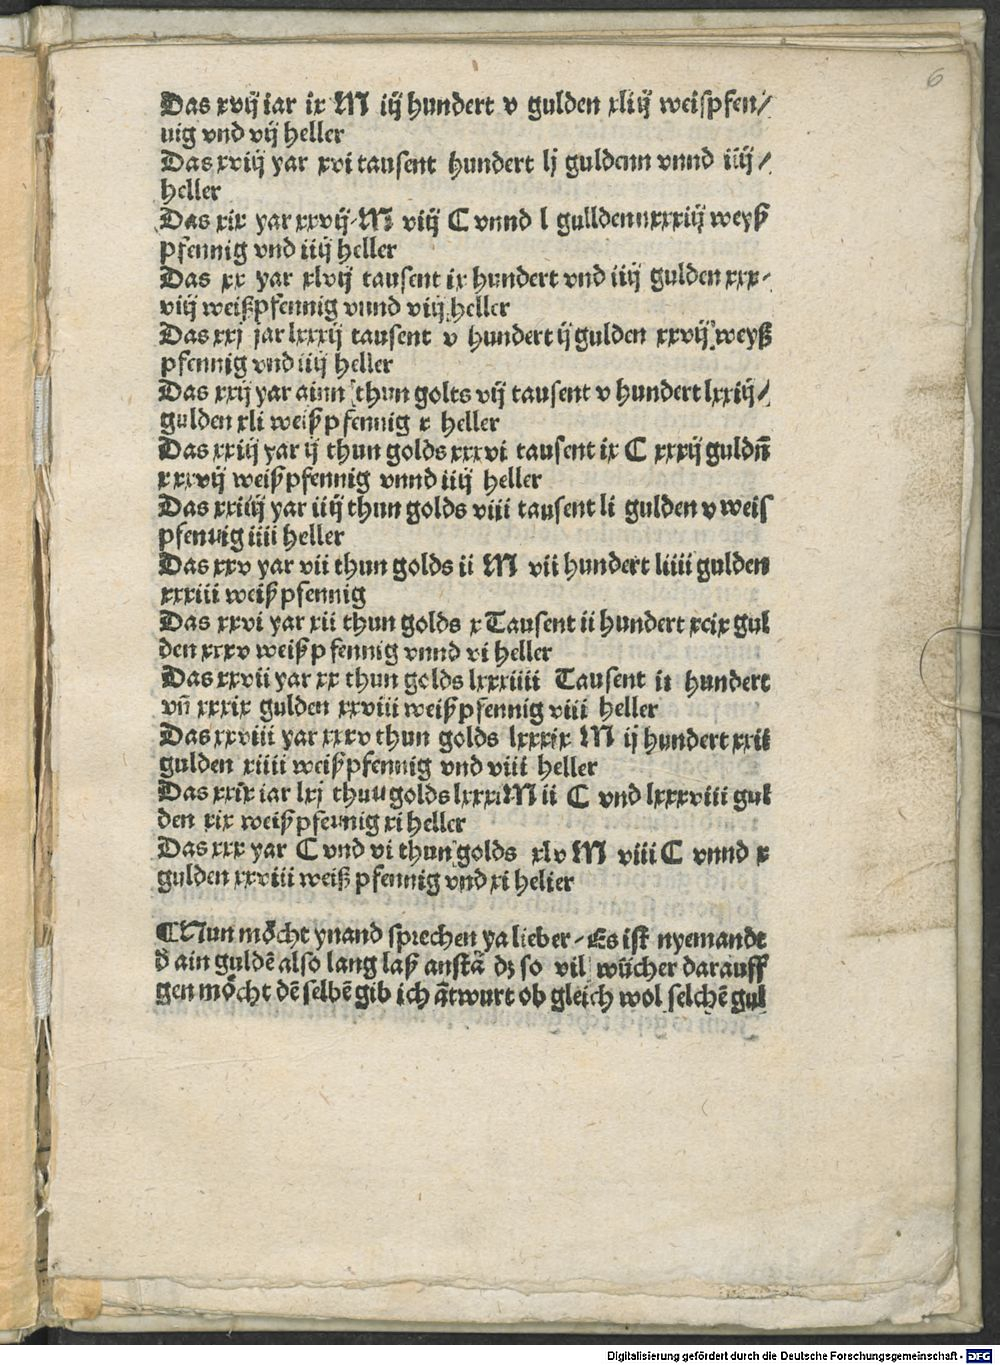 6
Das xvij iar ix M iij hundert v gulden xliij weispfen/
nig vnd vij heller
Das xviij yar xvi tausent hundert lj guldenn vnnd iiij/
heller
Das xix yar xxvij-M viij C vnnd l gulldennxxxiij weyß
pfennig vnd iiij heller
Das xx yar xlvij tausent ix hundert vnd iiij gulden xxx-
viij weißpfennig vnnd viij heller
Das xxj jar lxxxij tausent v hundert ij gulden xxvij weyß
pfennig vnd iiij heller
Das xxij yar ainn thun golts vij tausent v hundert lxxiij/
gulden xli weißpfennig x heller
Das xxiij yar ij thun golds xxxvi tausent ix C xxxij guldn̄
xxxvij weißpfennig vnnd iiij heller
Das xxiiij yar iiij thun golds viii tausent li gulden v weis
pfennig iiii heller
Das xxv yar vii thun golds ii M vii hundert liiii gulden
xxxiii weißpfennig
Das xxvi yar xii thun golds x Tausent ii hundert xcix gul
den xxxv weißpfennig vnnd vi heller
Das xxvii yar xx thun golds lxxxiiii Tausent ii hundert
vn̄ xxxix gulden xxviii weißpfennig viii heller
Das xxviii yar xxxv thun golds lxxxix M ij hundert xxii
gulden xiiii weißpfennig vnd viii heller
Das xxix iar lxj thuugolds lxxxiM ii C vnd lxxxviii gul
den xix weißpfennig xi heller
Das xxx yar C vnd vi thun golds xlv M viii C vnnd x
gulden xxviii weiß pfennig vnd xi heller
¶Nun möcht ynand sprechen ya lieber-Es ist nyemandt
d̄ ain guldē also lang laß anstā dz so vil wůcher darauff
gen möcht dē selbē gib ich ātwurt ob gleich wol selchē gul
Digitalisierung gefördert durch die Deutsche Forschungsgemeinschaft - DFG